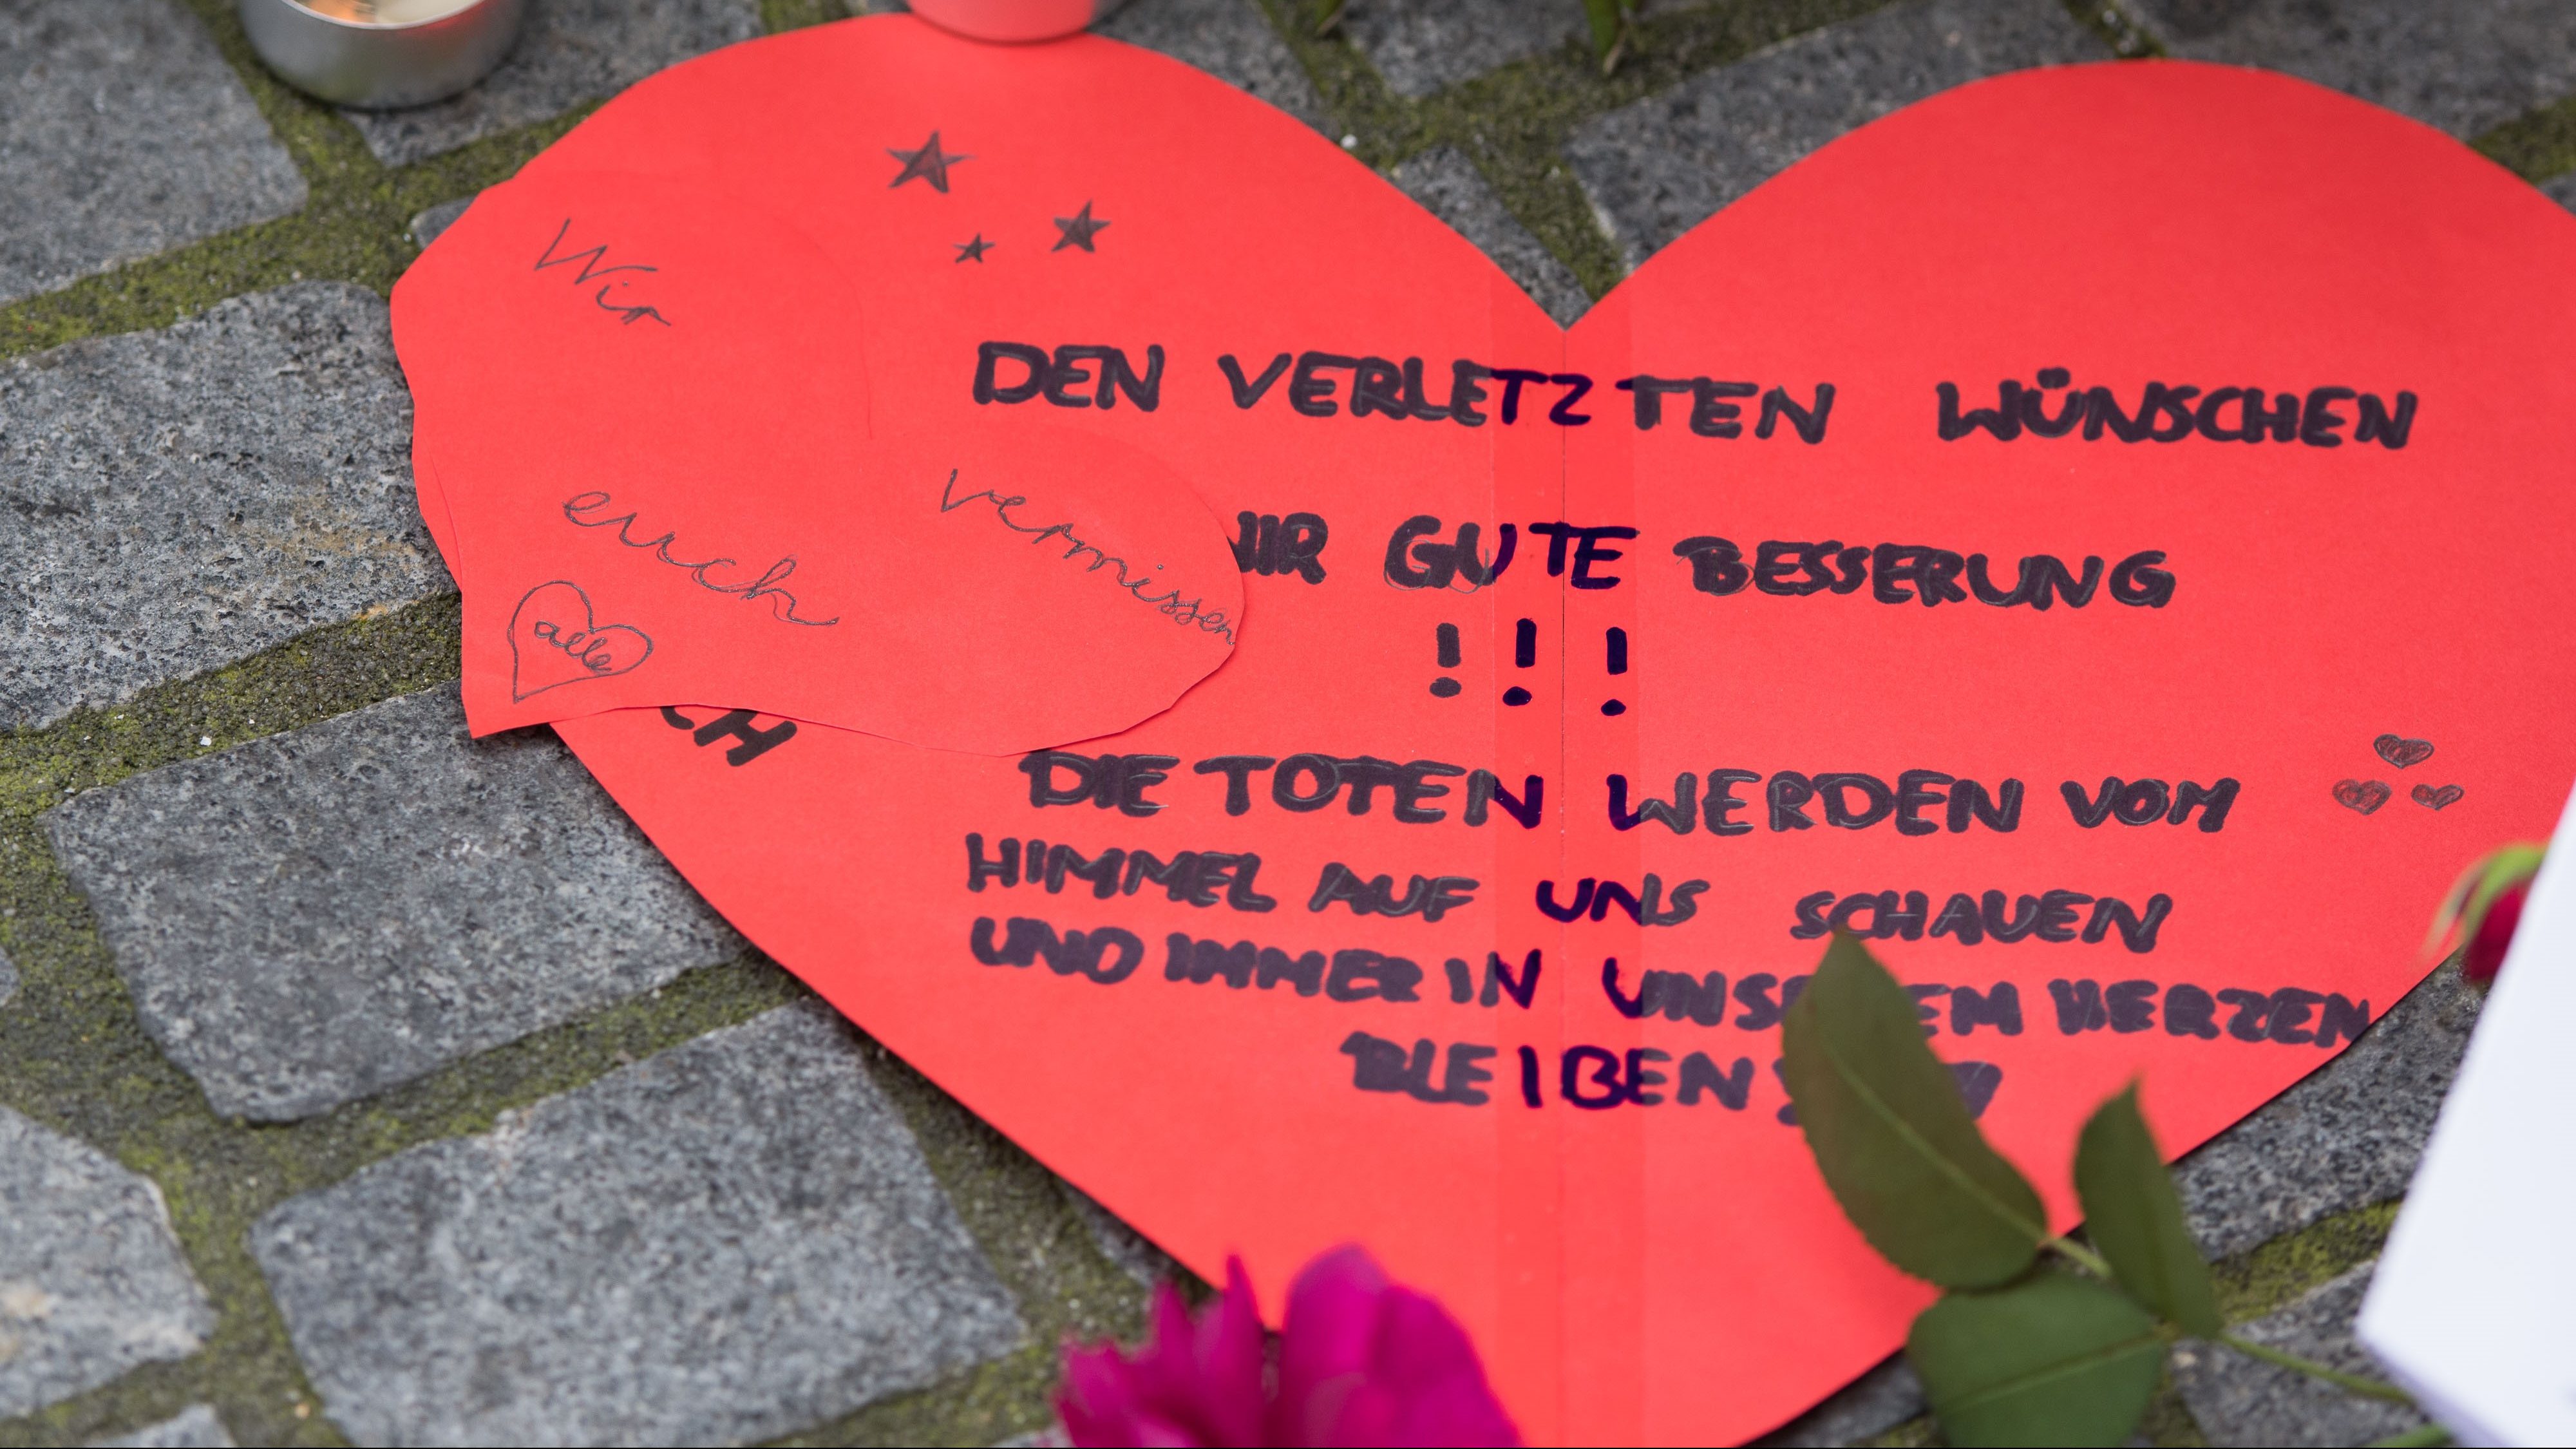 Wir
vermissen
euch
alle
CH
DEN VERLETZTEN WÜNSCHEN
GUTE BESSERUNG
!!!
DIE TOTEN WERDEN VOM
HIMMEL AUF UNS SCHAUEN
UND IMMER IN UNSEREM HERZEN
BLEIBEN